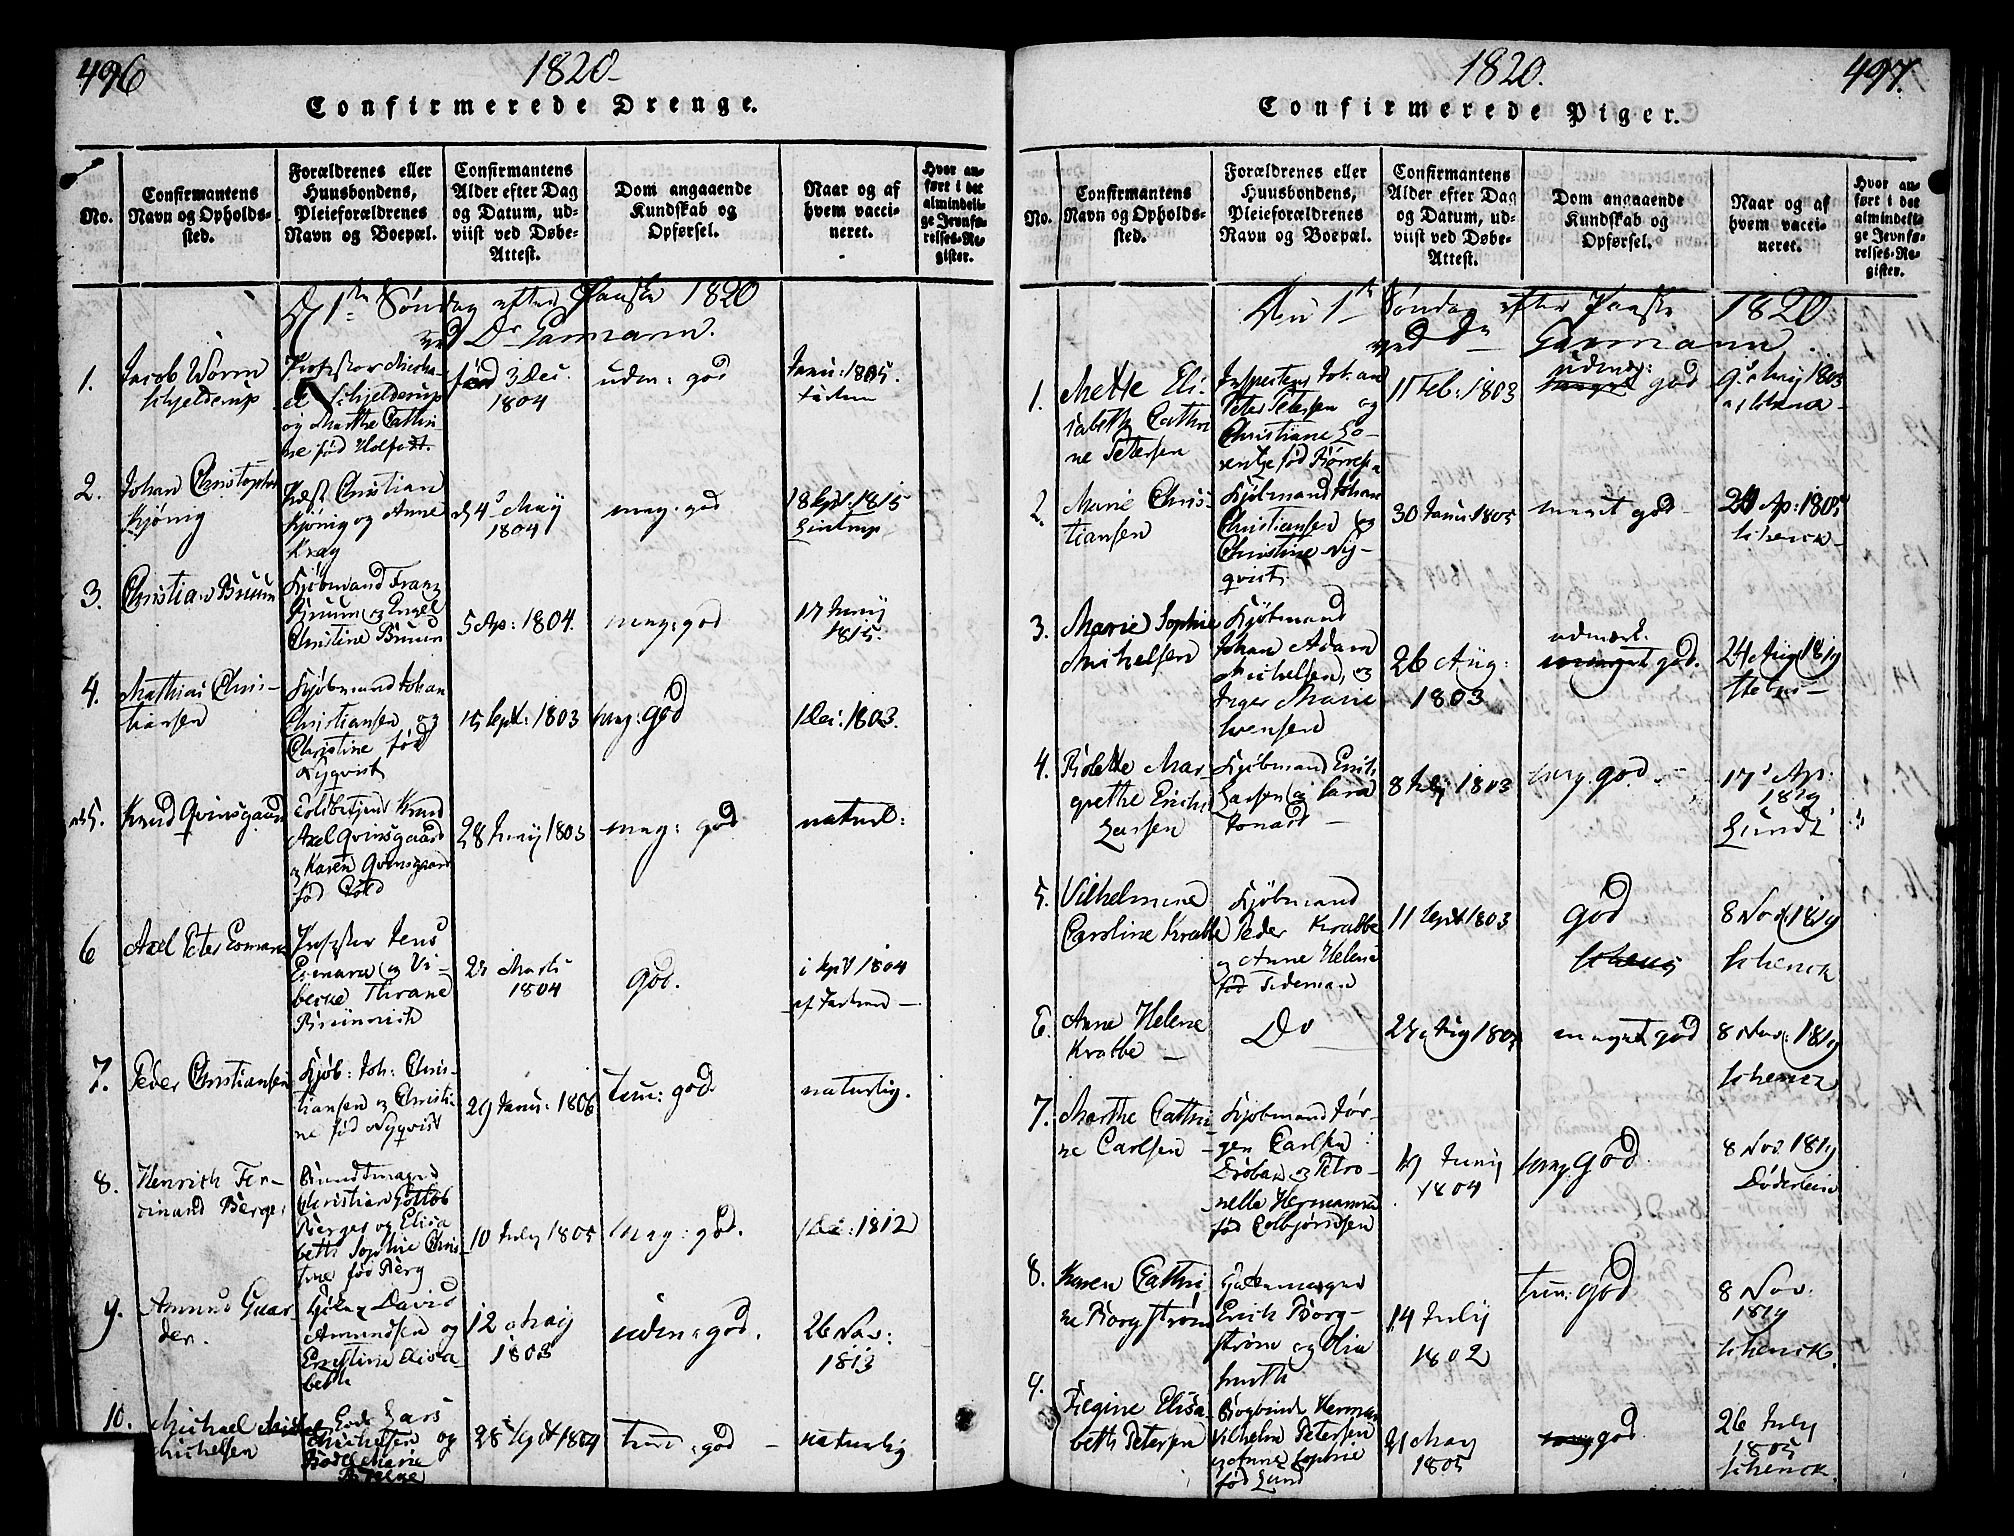 496
1820
Confirmerede Drenge.
No.
Confirmantens
Navn og Opholds-
sted.
Forældrenes eller
Huusbondens,
Pleieforældrenes
Navn og Boepæl.
Confirmantens
Alder efter Dag
og Datum, ud-
viist ved Døbe-
Attest.
Dom angaaende
Kundskab og
Opførsel.
Naar og af
hvem vacci-
neret.
Hvor an-
ført i det
almindeli-
ge Jevnfø-
relses-Re-
gister.
1ste Søndag efter Paaske 1820
ved Dr Garmann.
1.
Jacob Worm
Schjelderup
Professor Micha-
el Schjelderup
og Marthe Cathri-
ne fød
fød 3 Dec.
1804
udm: god
Janu: 1805.
2.
Johan Christopher
Kjønig
Christian
Kjønig og Anne
Krag
d 4 May
1804
meg. god
18 Sept. 1815
3.
Christian Bruun
Kjøbmand Franz
Bruun og Engel
Christine Bruun
5 Ap: 1804.
meg: god
17 Juny
1815.
4.
Mathias Chris-
tiansen
Kjøbmand Johan
Christiansen og
Christine fød
Nyqvist
15 Sept: 1803
meg: god
1 Dec. 1803.
5.
Knud Qvinsgaard
Knud
Axel Qvinsgaard
og Karen Qvinsgaard
fød Told
28 Juny 1803
meg: god
naturl:
6
Axel Peter Esmark
Professor Jens
Esmark og Vi-
becke Thrane
Brünnich
Marts
1804
god.
1 Sept 1804
7.
Peder Christiansen
Kjøb: Joh: Chris-
tiansen og Christi-
ne fød Nyqvist
29 Janu: 1806
tem: god
naturlig.
8.
Henrich Fer-
dinand Berger
Christian Gottlob
Berger og Elisa
beth Sophie Chris-
tine fød Berg
10 July 1805
meg: god.
1 Dec: 1812
9.
Amund Gaar
der.
David
Amundsen og
Ernestine Elisa-
beth
12 May
1803
udm: god.
26 Nov:
1813
10.
Michael
Michelsen
Lars
Michelsen og
Bodel Marie
28 Sept 1804
tem: god
naturlig
1820.
497.
Confirmerede Piger.
No.
Confirmantens
Navn og Opholds-
sted.
Forældrenes eller
Huusbondens,
Pleieforældrenes
Navn og Boepæl.
Confirmantens
Alder efter Dag
og Datum, ud-
viist ved Døbe-
Attest.
Dom angaaende
Kundskab og
Opførsel.
Naar og af
hvem vacci-
neret.
Hvor an-
ført i det
almindeli-
ge Jevnfø-
relses-Re-
gister.
Den 1ste Søndag efter Paaske 1820
ved Dr Garmann.
1.
Mette Eli-
sabeth Cathri
ne Petersen
Johan
Peter Petersen og
Christiane Lo-
rentze fød
11 Feb: 1803
udmær:
meget god
9 May 1803
2.
Marie Chris-
tiansen
Kjøbmand Johan
Christiansen og
Christine Ny-
qvist.
30 Janu: 1805
meget god
Ap: 1805
Schenck
3.
Marie Sophie
Michelsen
Kjøbmand
Johan Adam
Michelsen, og
Inger Marie
Svensen
26 Aug:
1803
udmærk.
meget god.
24 Aug 1819
4.
Bolette Mar-
grethe Erichs
Larsen
Kjøbmand Erich
Larsen og Sara
Jonas
8 July 1803
meg. god
17 Ap:
1819
Lundt
5.
Vilhelmine
Caroline Krabbe
Kjøbmand
Peder Krabbe
og Anne Helene
fød Tideman
11 Sept 1803
god
Schenck
8 Nov: 1819
Schenck
6.
Anne Helene
Krabbe
Do
Aug 1804
meget god
8 Nov: 1819
Schenck
7.
Marthe Cathri
ne Carlsen
Kjøbmand Jør-
gen Carlsen
Drøbak og Petro-
nelle Hermanna
fød Colbjørnsen
19 Juny
1804
meg: god
8 Nov. 1819
Døderlein
8.
Karen Cathri
ne Borgstrøm
Erich Borg-
strøm og Olia
Smith
14 July
1802
tem: god
8 Nov:
1819
Schenck.
9.
Regine Elisa-
beth Petersen
Bogbinder Herman
Vilhelm Petersen
og Anne Sophie
fød Lund
21 May
1805
meg god
26 July
1805
Schenck.